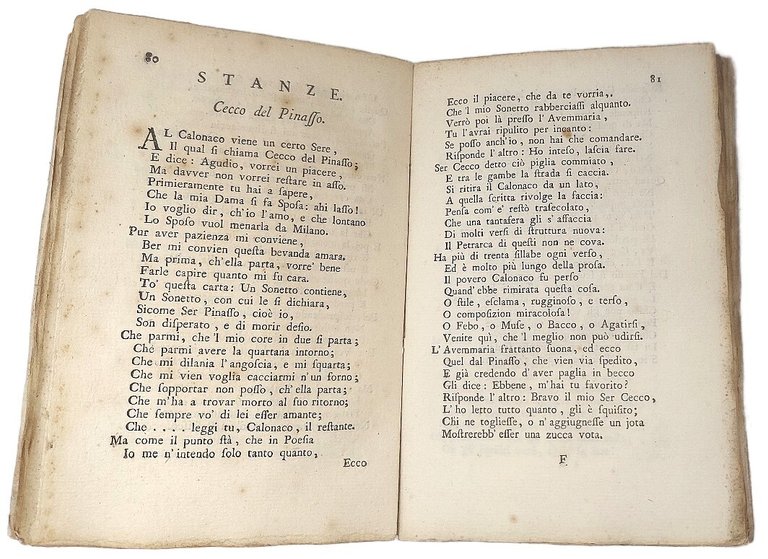 80
STANZE.
Cecco del Pinaſſo.
AL Calonaco viene un certo Sere,
Il qual ſi chiama Cecco del Pinaſſo;
E dice: Agudio, vorrei un piacere,
Ma davver non vorrei reſtare in aſſo.
Primieramente tu hai a ſapere,
Che la mia Dama ſi fa Spoſa: ahi laſſo!
Io voglio dir, ch'io l'amo, e che lontano
Lo Spoſo vuol menarla da Milano.
Pur aver pazienza mi conviene,
Ber mi convien queſta bevanda amara.
Ma prima, ch'ella parta, vorre' bene
Farle capire quanto mi fu cara.
To' queſta carta: Un Sonetto contiene,
Un Sonetto, con cui le ſi dichiara,
Sicome Ser Pinaſſo, cioè io,
Son diſperato, e di morir deſio.
Che parmi, che 'l mio core in due ſi parta;
Che parmi avere la quartana intorno;
Che mi dilania l'angoſcia, e mi ſquarta;
Che mi vien voglia cacciarmi n'un forno;
Che ſopportar non poſſo, ch'ella parta;
Che m'ha a trovar morto al ſuo ritorno;
Che ſempre vo' di lei eſſer amante;
Che . . . . leggi tu, Calonaco, il reſtante.
Ma come il punto ſtà, che in Poeſia
Io me n'intendo ſolo tanto quanto,
Ecco
81
Ecco il piacere, che da te vorria,
Che 'l mio Sonetto rabberciaſſi alquanto.
Verrò poi là preſſo l'Avemmaria,
Tu l'avrai ripulito per incanto:
Se poſſo anch'io, non hai che comandare.
Riſponde l'altro: Ho inteſo, laſcia fare.
Ser Cecco detro ciò piglia commiato,
E tra le gambe la ſtrada ſi caccia.
Si ritira il Calonaco da un lato,
A quella ſcritta rivolge la faccia:
Penſa com' e' reſtò traſecolato,
Che una tantafera gli s'affaccia
Di molti verſi di ſtruttura nuova:
Il Petrarca di queſti non ne cova.
Ha più di trenta ſillabe ogni verſo,
Ed è molto più lungo della proſa.
Il povero Calonaco fu perſo
Quand'ebbe rimirata queſta coſa.
O ſtile, eſclama, rugginoſo, e terſo,
O compoſizion miracoloſa!
O Febo, o Muſe, o Bacco, o Agatirſi,
Venite quì, che 'l meglio non può udirſi.
L'Avemmaria frattanto ſuona, ed ecco
Quel dal Pinaſſo, che vien via ſpedito,
E già credendo d'aver paglia in becco
Gli dice: Ebbene, m'hai tu favorito?
Riſponde l'altro: Bravo il mio Ser Cecco,
L'ho letto tutto quanto, gli è ſquiſito;
Chi ne toglieſſe, o n'aggiugneſſe un jota
Moſtrerebb'eſſer una zucca vota.
F